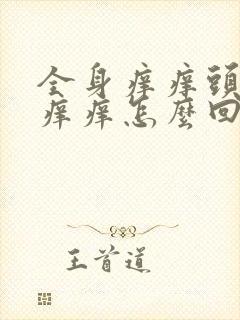 全身痒痒頭
痒痒怎麼回
王首道